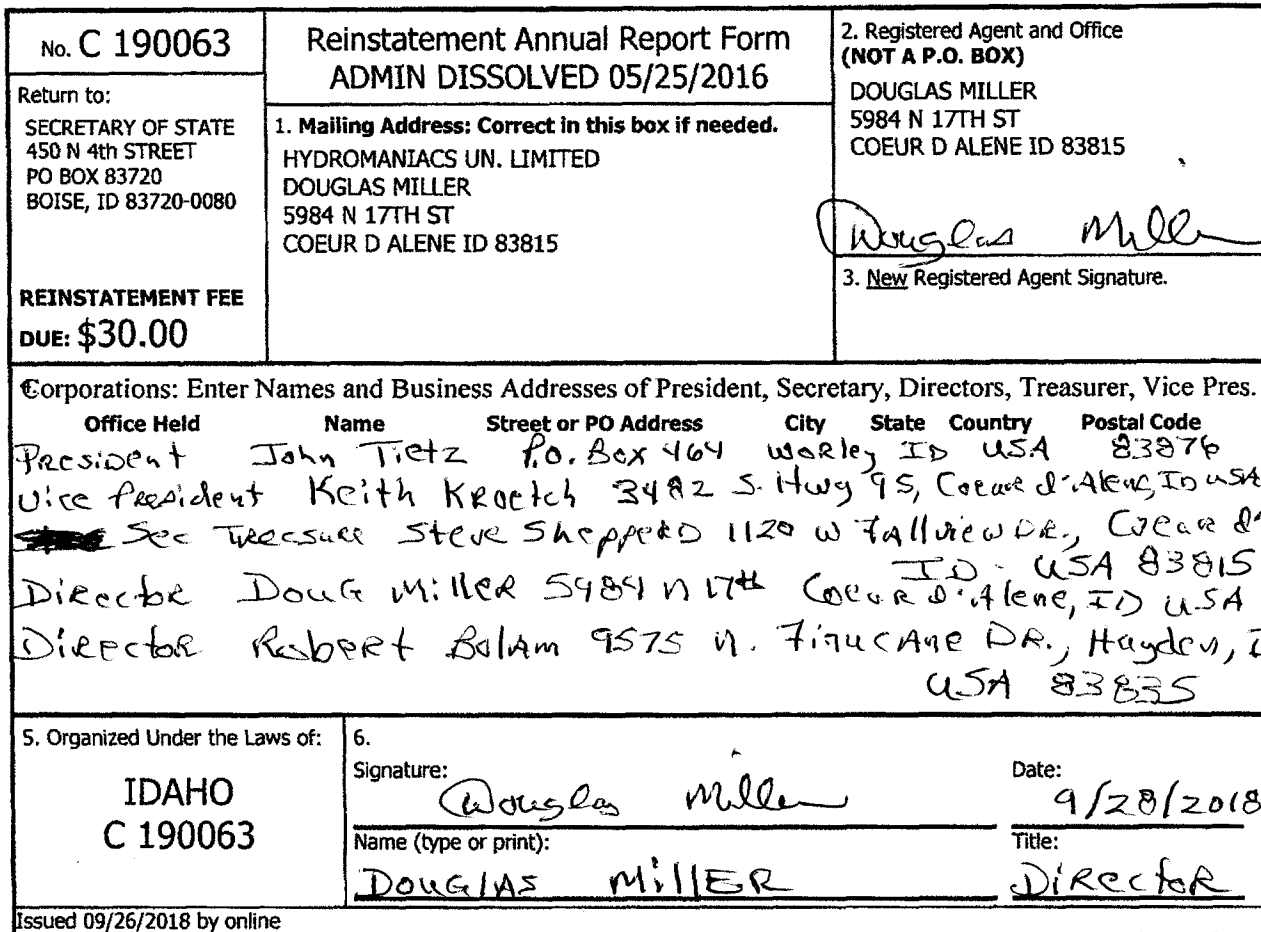 No. C 190063
Return to:
SECRETARY OF STATE
450 N 4th STREET
PO BOX 83720
BOISE, ID 83720-0080
REINSTATEMENT FEE
DUE: $30.00
Reinstatement Annual Report Form
ADMIN DISSOLVED 05/25/2016
1. Mailing Address: Correct in this box if needed.
HYDROMANIACS UN. LIMITED
DOUGLAS MILLER
5984 N 17TH ST
COEUR D ALENE ID 83815
2. Registered Agent and Office
(NOT A P.O. BOX)
DOUGLAS MILLER
5984 N 17TH ST
COEUR D ALENE ID 83815
Douglas Miller
3. New Registered Agent Signature.
Corporations: Enter Names and Business Addresses of President, Secretary, Directors, Treasurer, Vice Pres.
Office Held Name Street or PO Address City State Country Postal Code
President John Tietz P.O. Box 464 Worley ID USA 83876
Vice President Keith Kroetch 3482 S. Hwy 95, Coeur d'Alene, ID USA
Sec Treasure Steve Shepperd 1120 W Fallview DR., Coeur d'
ID. USA 83815
Director Doug Miller 5984 N 17th Coeur d'Alene, ID USA
Director Robert Bolam 9575 N. Finucane DR., Hayden, I
USA 83835
5. Organized Under the Laws of:
IDAHO
C 190063
6.
Signature: Douglas Miller
Date: 9/28/2018
Name (type or print): DOUGLAS MillER
Title: Director
Issued 09/26/2018 by online